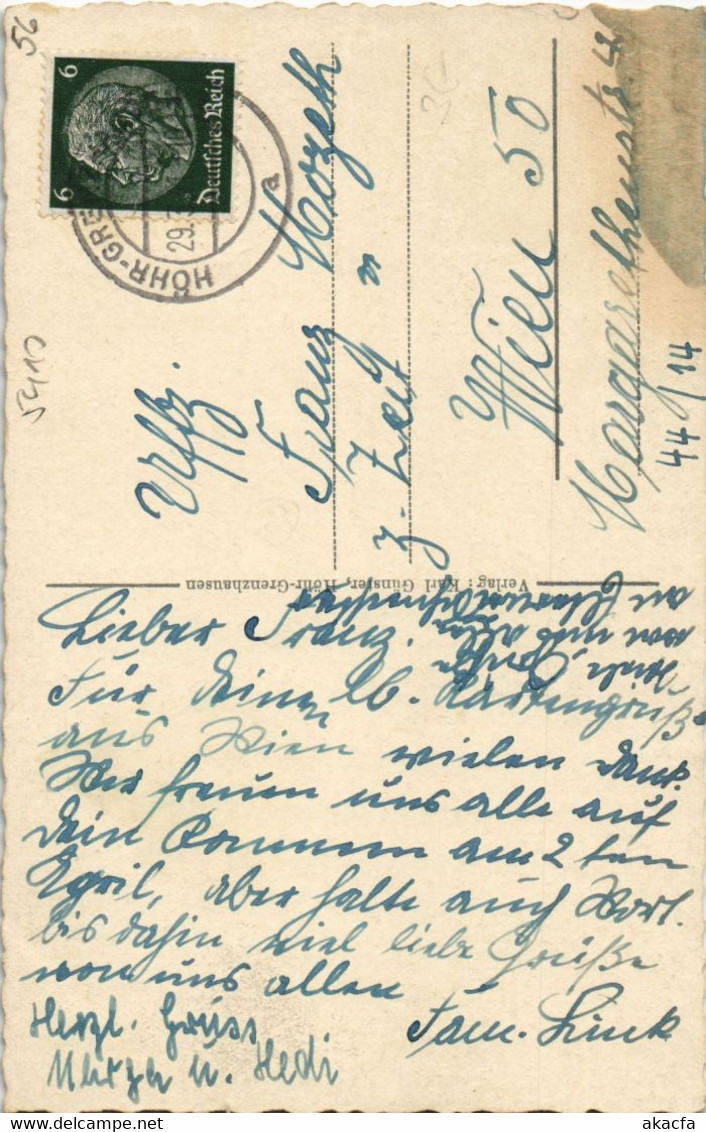 56
6 6
Deutsches Reich
HÖHR-GRE
29.
a
5410
Uffz.
Franz Mozeth
z. Zeit in
Wien 50
Margarethenstr.
44/14
Verlag: Karl Günster, Höhr-Grenzhausen
Lieber Franz.
Für deinen lb. Kartengruß
aus Wien vielen Dank.
Wir freuen uns alle auf
dein Kommen am 2ten
April, aber halte auch Wort.
bis dahin viel liebe Grüße
von uns allen
Fam. Link
Herzl. Grüss
u. Hedi
von uns allen
an
akacfa